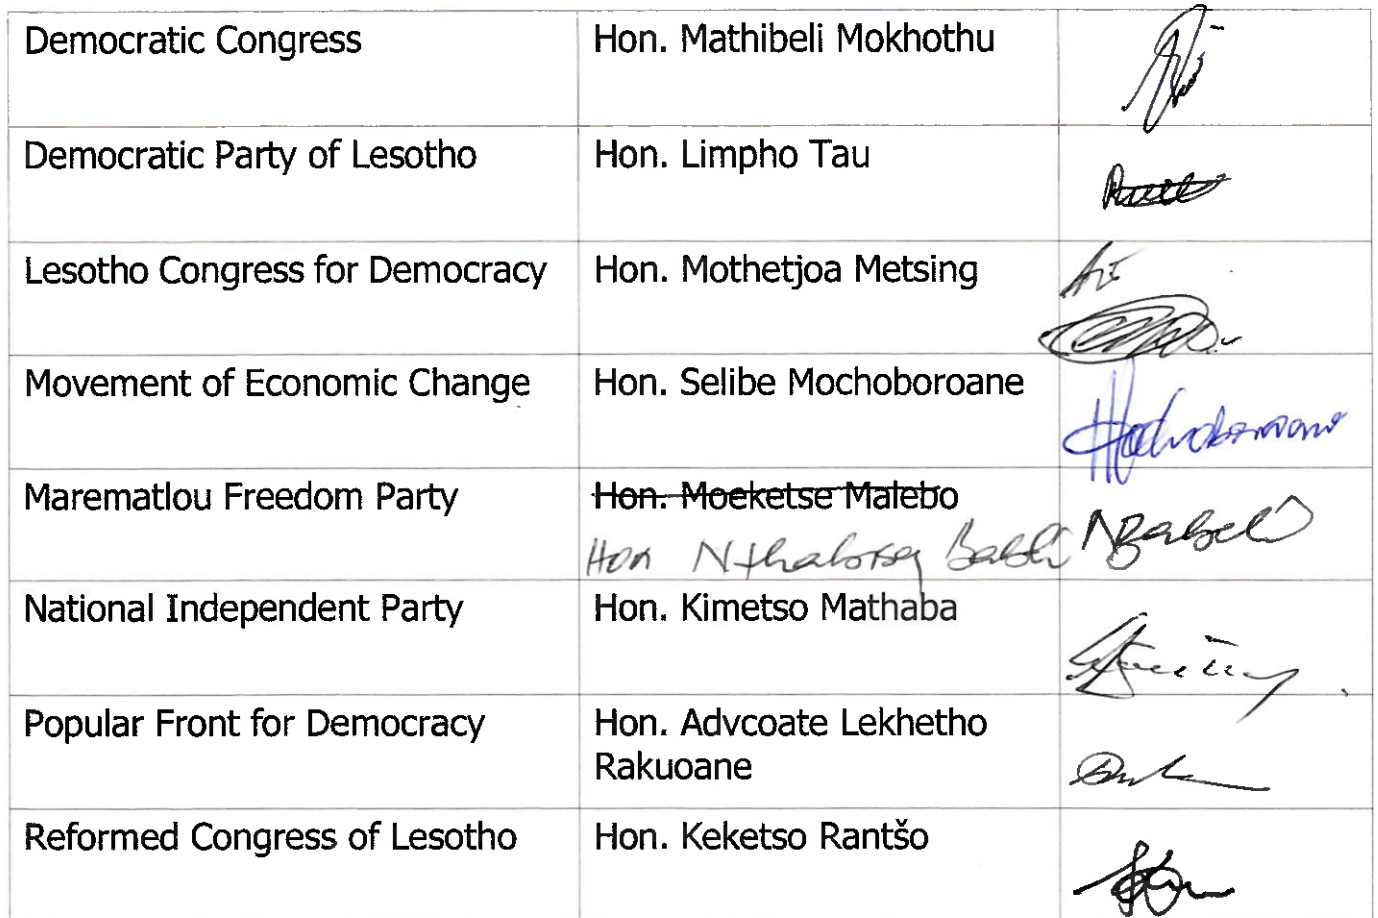 Democratic Congress
Hon. Mathibeli Mokhothu
Democratic Party of Lesotho
Hon. Limpho Tau
Lesotho Congress for Democracy
Hon. Mothetjoa Metsing
Movement of Economic Change
Hon. Selibe Mochoboroane
Marematlou Freedom Party
Hon. Moeketse Malebo
Hon
National Independent Party
Hon. Kimetso Mathaba
Popular Front for Democracy
Hon. Advcoate Lekhetho
Rakuoane
Reformed Congress of Lesotho
Hon. Keketso Rantšo